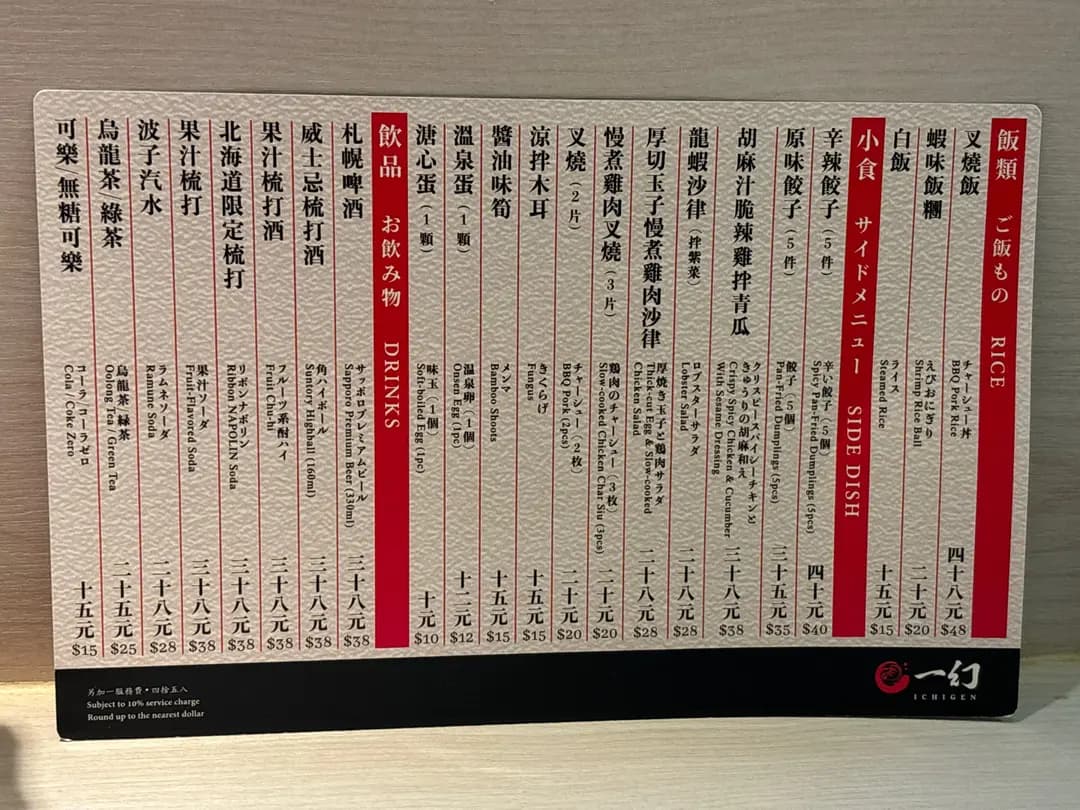 飯類 ご飯もの RICE
叉燒飯 チャーシュー丼 四十八元
BBQ Pork Rice $48
蝦味飯糰 えびおにぎり 二十元
Shrimp Rice Ball $20
白飯 ライス 十五元
Steamed Rice $15
小食 サイドメニュー SIDE DISH
辛辣餃子（5件） 辛い餃子（5個） 四十元
Spicy Pan-Fried Dumplings (5pcs) $40
原味餃子（5件） 餃子（5個） 三十五元
Pan-Fried Dumplings (5pcs) $35
胡麻汁脆辣雞拌青瓜 クリスピースパイシーチキンと 三十八元
きゅうりの胡麻和え
Crispy Spicy Chicken & Cucumber
with Sesame Dressing $38
龍蝦沙律（拌紫菜） ロブスターサラダ 二十八元
Lobster Salad $28
厚切玉子慢煮雞肉沙律 厚焼き玉子と鶏肉サラダ 二十八元
Thick-cut Egg & Slow-cooked
Chicken Salad $28
慢煮雞肉叉燒（3片） 鶏肉のチャーシュー（3枚） 二十元
Slow-cooked Chicken Char Siu (3pcs) $20
叉燒（2片） チャーシュー（2枚） 二十元
BBQ Pork (2pcs) $20
涼拌木耳 きくらげ 十五元
Fungus $15
醬油味筍 メンマ 十五元
Bamboo Shoots $15
溫泉蛋（1顆） 温泉卵（1個） 十二元
Onsen Egg (1pc) $12
溏心蛋（1顆） 味玉（1個） 十元
Soft-boiled Egg (1pc) $10
飲品 お飲み物 DRINKS
札幌啤酒 サッポロプレミアムビール 三十八元
Sapporo Premium Beer (330ml) $38
威士忌梳打酒 角ハイボール 三十八元
Suntory Highball (160ml) $38
果汁梳打酒 フルーツ系酎ハイ 三十八元
Fruit Chu-hi $38
北海道限定梳打 リボンナポリン 三十八元
Ribbon NAPOLIN Soda $38
果汁梳打 果汁ソーダ 三十八元
Fruit-Flavored Soda $38
波子汽水 ラムネソーダ 二十八元
Ramune Soda $28
烏龍茶 綠茶 烏龍茶 緑茶 二十五元
Oolong Tea / Green Tea $25
可樂/無糖可樂 コーラ/コーラゼロ 十五元
Cola / Coke Zero $15
另加一服務費・四捨五入
Subject to 10% service charge
Round up to the nearest dollar
一幻
ICHIGEN